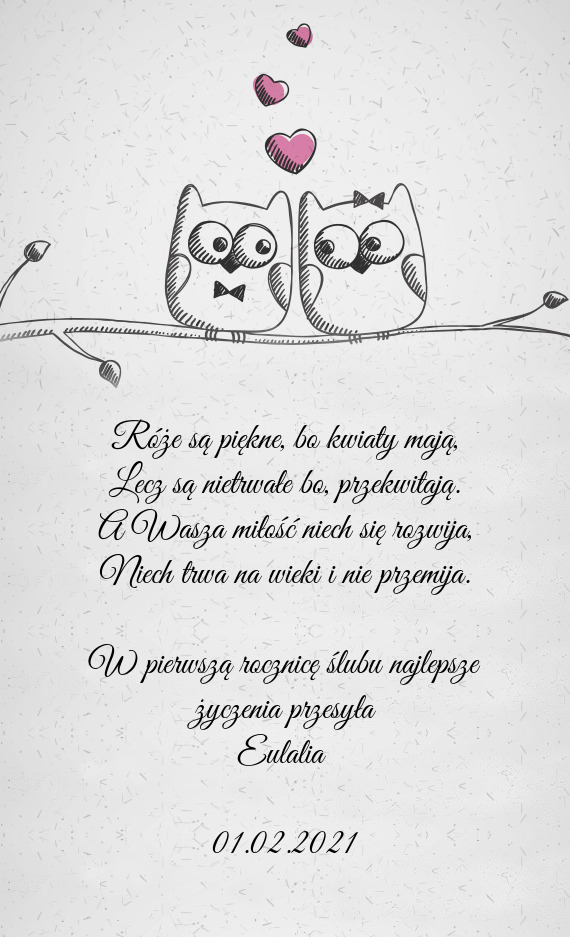 Róże są piękne, bo kwiaty mają,
Lecz są nietrwałe bo, przekwitają.
A Wasza miłość niech się rozwija,
Niech trwa na wieki i nie przemija.
W pierwszą rocznicę ślubu najlepsze
życzenia przesyła
Eulalia
01.02.2021